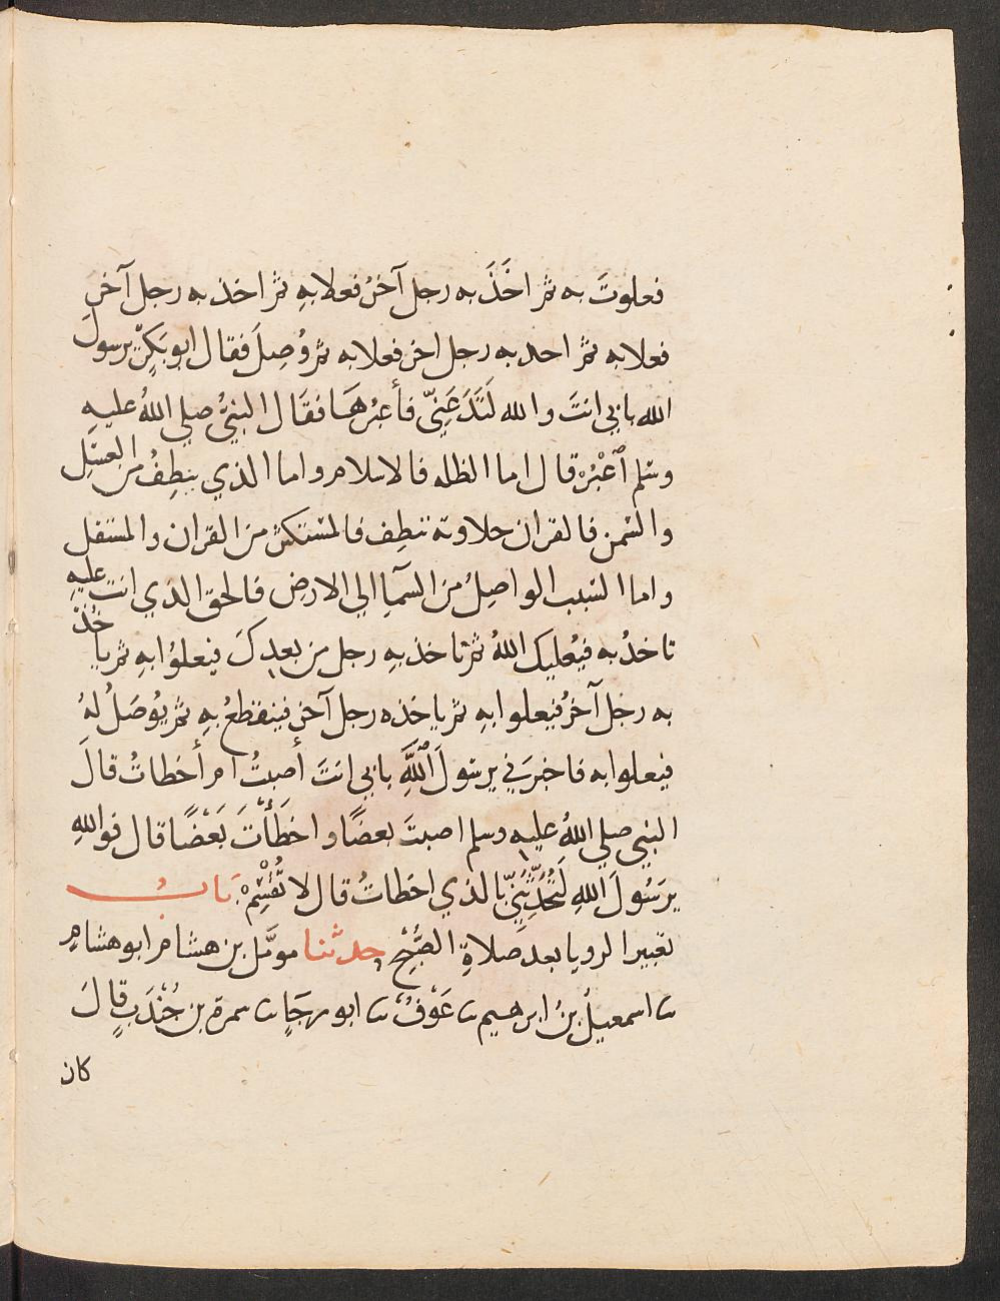 فعلوتَ به ثم اخَذَ به رجل آخرُ فعلا بهِ ثم اخذ به رجل آخر
فعلا به ثم احد به رجل اخر فعلا به ثم وُصِلَ فقال ابو بَكرٍ يرسولَ
الله بابي انتَ والله لَتَدَعَنِّي فأَعبُرهَا فقَال النبيُّ صلي اللهُ عليهِ
وسلم اَعْبُرْ قال اما الظله فالاسلام واما الذي ينطِفُ من العسَلِ
والسَمن فالقران حلاوته تنطِف فالمستكثرُ من القران والمستقل
واما السَبب الواصِلُ مِنَ السَمآءِ الي الارضِ فالحق الذي انت عليهِ
تاخذُ به فيُعليك اللهُ ثم تاخذ بهِ رجل مِن بعدِكَ فيعلوُا بهِ ثم ياخُذُ
به رجل آخرُ فيُعلوا بهِ ثم ياخذه رجل آخر فينقطعُ بهِ ثم يوُصَلُ لهُ
فيعلوا به فاخبرَني يرسُولَ اللَّهِ بابي انتَ أصبتُ ام أخطاتُ قالَ
النبي صلي اللهُ عليهِ وسلم اصبتَ بعضًا واخطَأْتَ بَعْضًا قال فواللهِ
يرسُولَ اللهِ لَتُحَدِّثَنِّي بالذي اخطاتُ قال لا تُقْسِمْ بَابُ
تعبير الرويا بعد صَلاةِ الصُبْحِ حدثنا مومَّل بن هشام ابو هشامٍ
ثنا اسمعيلُ بنُ ابرهيم ثنا عَوْفٌ ثنا ابو رجَاءٍ ثنا سمرة بن جُنْدَبٍ قالَ
كان